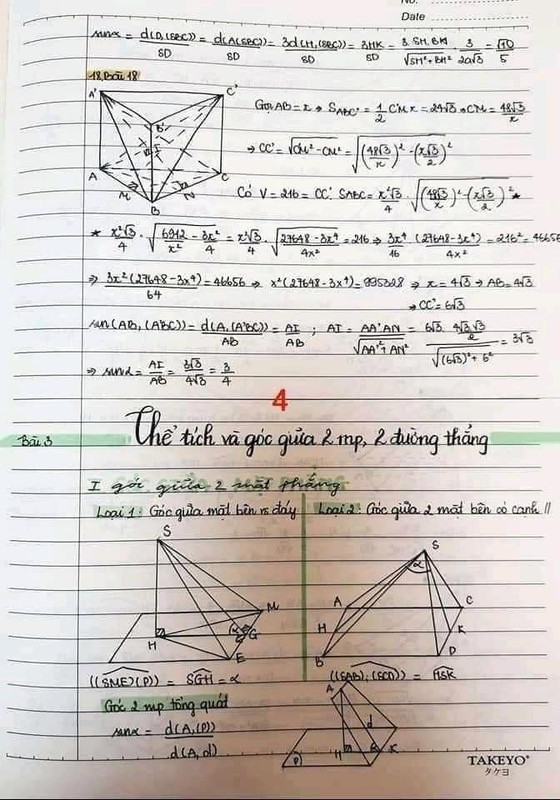 No.
Date
sinα = d(D,(SBC))/SD = d(A(SBC))/SD = 3d(H,(SBC))/SD = 3HK/SD = 3.SH.BH/√(SH²+BH²) . 3/2a√3 = √10/5
18, Bài 18
A' C' B' I A C M N B
Gọi AB = x → S_ABC' = 1/2 C'M x = 24√3 → C'M = 48√3/x
→ CC' = √(C'M² - CM²) = √((48√3/x)² - (x√3/2)²)
Có V = 216 = CC'. S_ABC = x²√3/4 . √((48√3/x)² - (x√3/2)²) *
* x²√3/4 . √(6912/x² - 3x²/4) = x²√3/4 . √((27648 - 3x⁴)/4x²) = 216 → 3x⁴/16 . (27648 - 3x⁴)/4x² = 216² = 46656
⇒ 3x²(27648 - 3x⁴)/64 = 46656 → x²(27648 - 3x⁴) = 995328 → x = 4√3 → AB = 4√3
→ CC' = 6√3
sin(AB, (A'BC)) = d(A,(A'BC))/AB = AI/AB ; AI = AA'.AN/√(AA'²+AN²) = 6√3 . 4√3.√3/2 / √((6√3)² + 6²) = 3√3
⇒ sinα = AI/AB = 3√3/4√3 = 3/4
4
Bài 3 Thể tích và góc giữa 2 mp, 2 đường thẳng
I góc giữa 2 mặt phẳng
Loại 1: Góc giữa mặt bên vs đáy
Loại 2: Góc giữa 2 mặt bên có cạnh //
S M H α G E
S α A C H K B D
((SME)(P)) = SGH = α
((SAB);(SCD)) = HSK
Góc 2 mp tổng quát
sinα = d(A,(P))/d(A,d)
A d H α K P
TAKEYO®
タケヨ